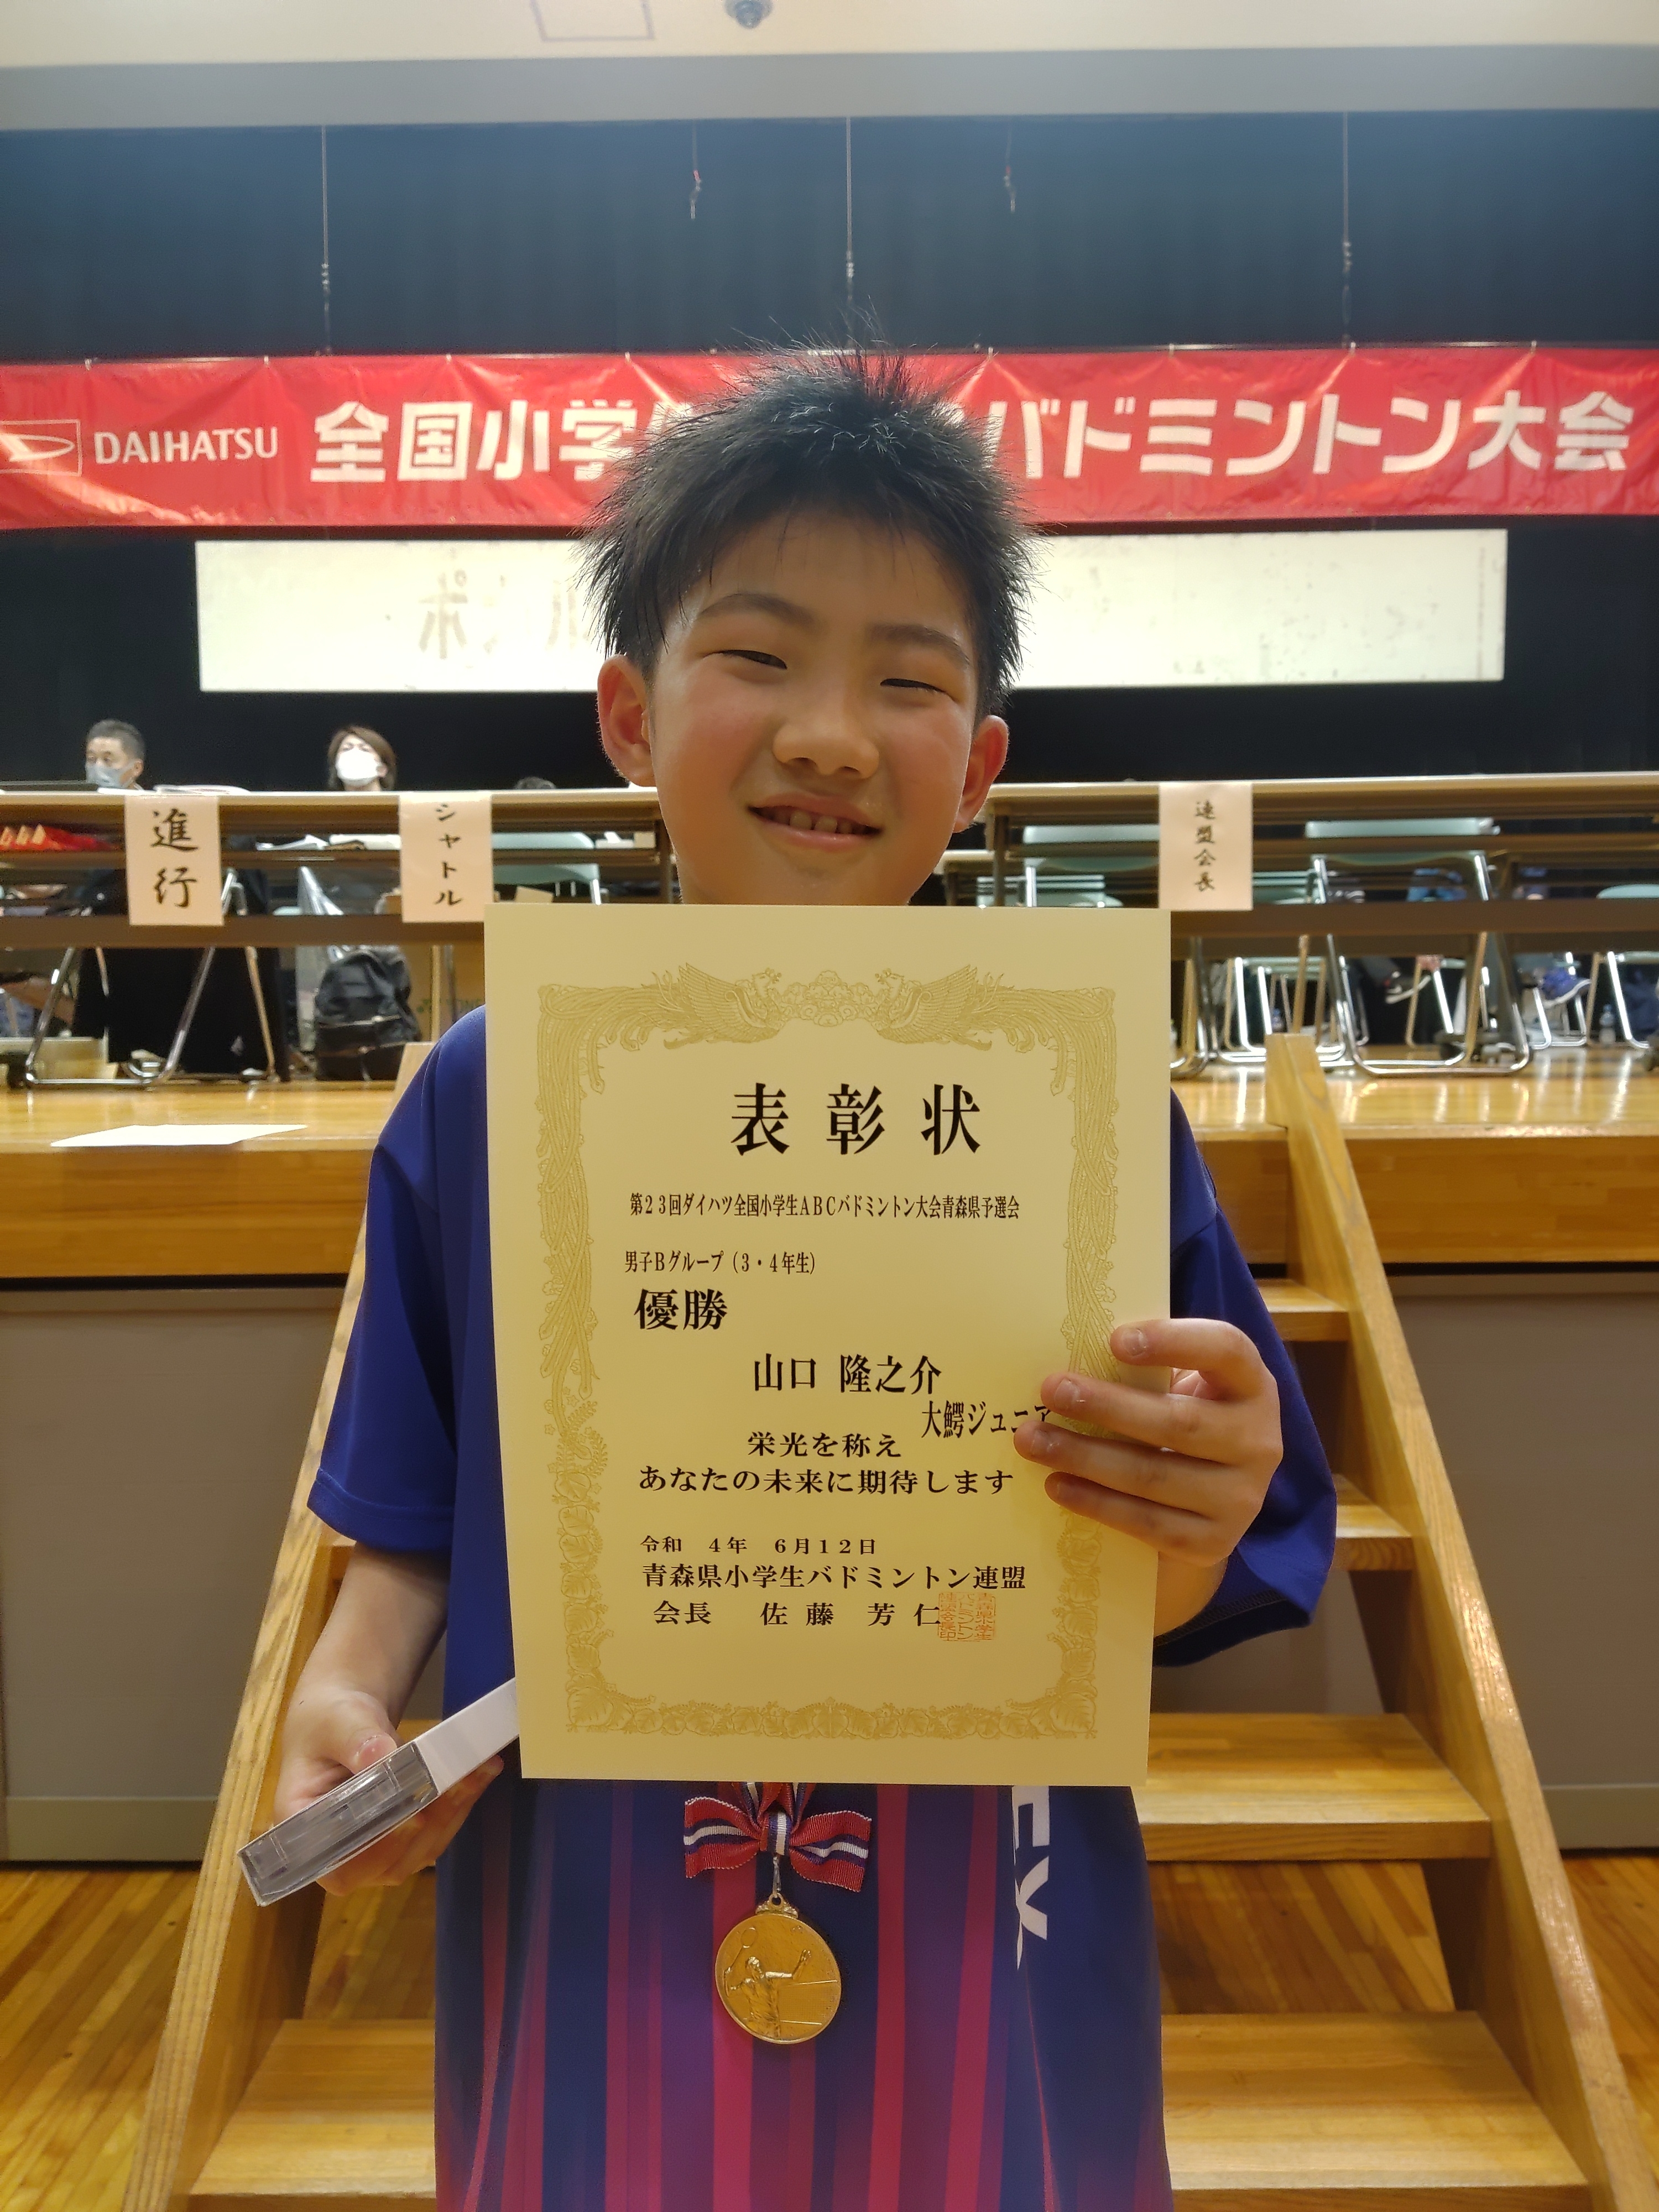 DAIHATSU 全国小学 バドミントン大会
進行
シャトル
連盟会長
表彰状
第23回ダイハツ全国小学生ABCバドミントン大会青森県予選会
男子Bグループ(3・4年生)
優勝
山口 隆之介
大鰐ジュニア
栄光を称え
あなたの未来に期待します
令和 4年 6月12日
青森県小学生バドミントン連盟
会長 佐藤 芳仁